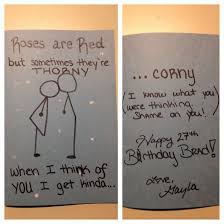 Roses are Red
but sometimes they're
THORNY
when I think of
YOU I get kinda...
... corny
(I know what you
were thinking.
Shame on you!)
Happy 27th
Birthday Beard!
Love,
Kayla